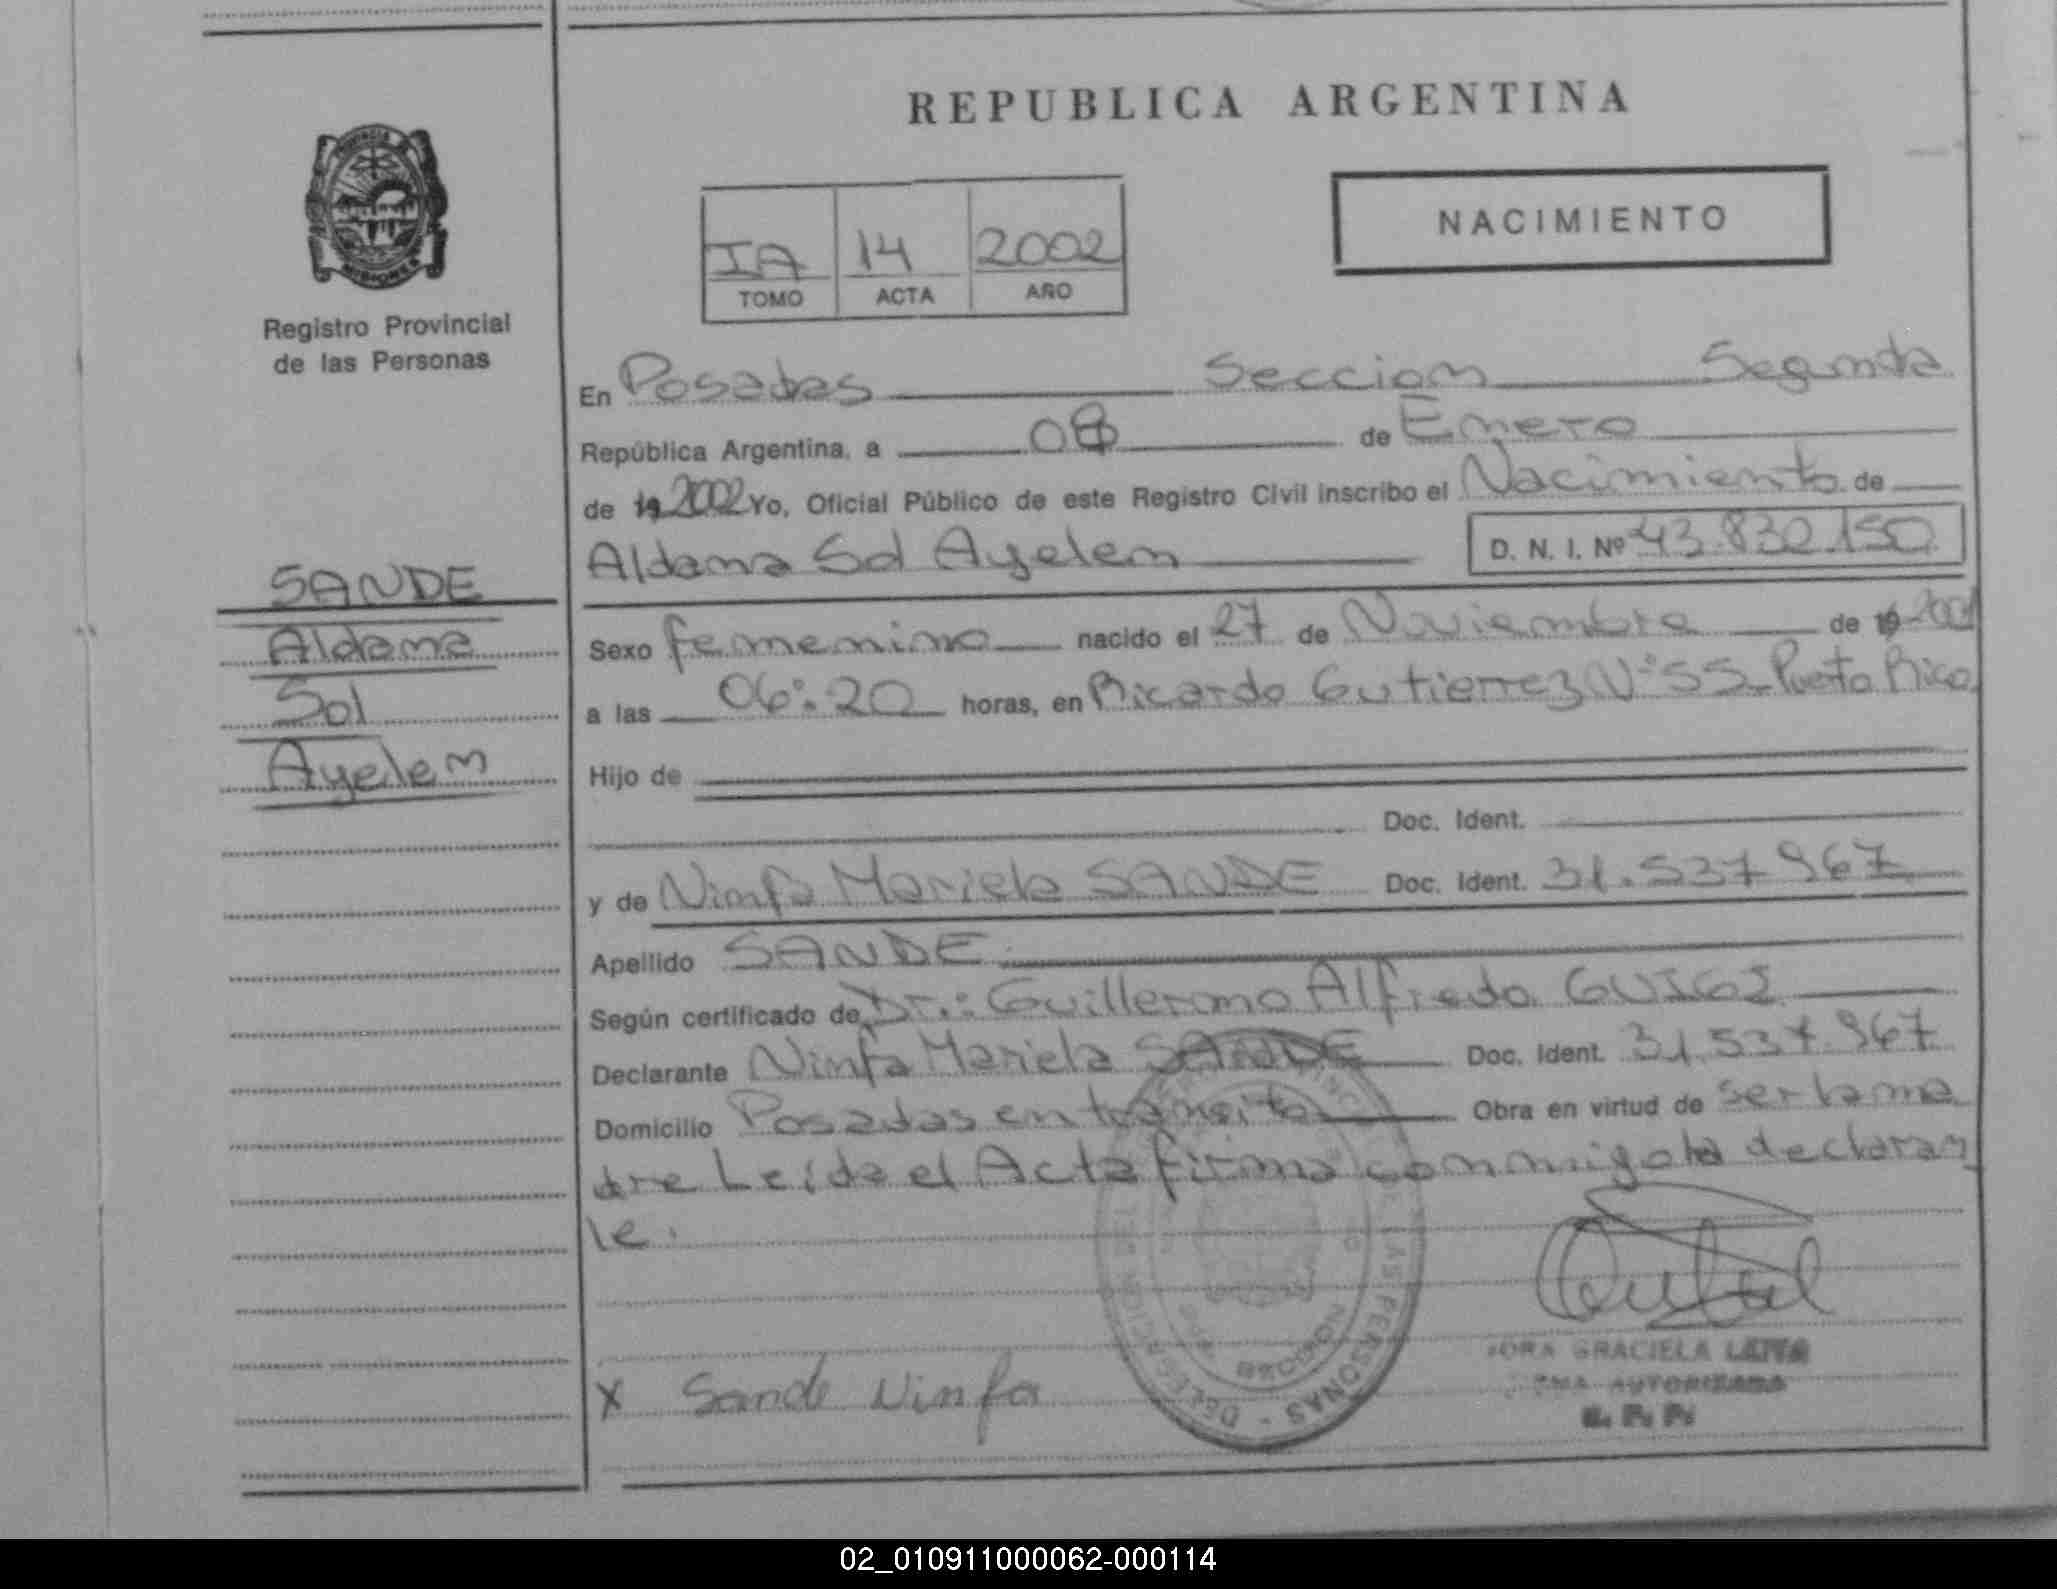 REPUBLICA ARGENTINA
PROVINCIA DE
MISIONES
Registro Provincial
de las Personas
NACIMIENTO
IA 14 2002
TOMO ACTA AÑO
En Posadas Seccion Segunda
República Argentina, a 08 de Enero
de 19 2002 Yo, Oficial Público de este Registro Civil inscribo el Nacimiento de
Aldana Sol Ayelen D. N. I. Nº 43.832.150
SANDE
Aldana
Sol
Ayelen
Sexo femenino nacido el 27 de Noviembre de 19 2001
a las 06:20 horas, en Ricardo Gutierrez Nº 55 Puerto Rico
Hijo de
Doc. Ident.
y de Ninfa Mariela SANDE Doc. Ident. 31.537.967
Apellido SANDE
Según certificado de Dr.: Guillermo Alfredo
Declarante Ninfa Mariela SANDE Doc. Ident. 31.537.967
Domicilio Posadas en transito Obra en virtud de ser la ma
dre Leída el Acta firma conmigo la declaran
te.
DE LAS PERSONAS - DELEGACION
X Sande Ninfa
GRACIELA
AUTORIZADA
02_010911000062-000114